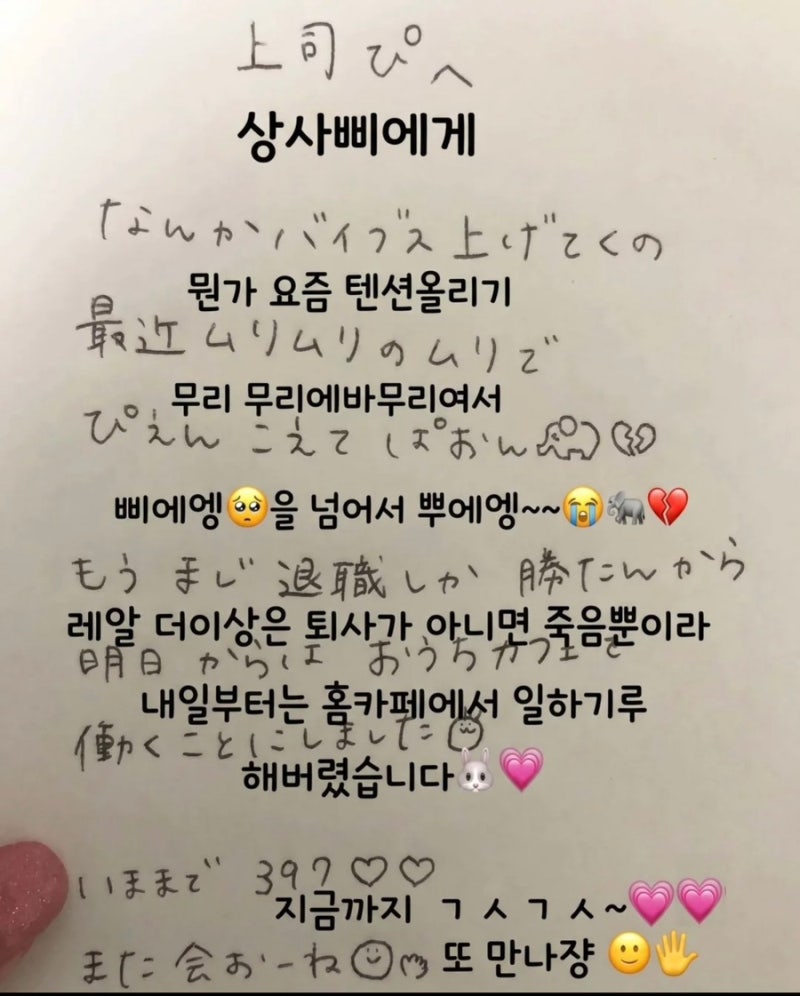 上司ぴへ
상사삐에게
なんかバイブス上げてくの
뭔가 요즘 텐션올리기
最近ムリムリのムリで
무리 무리에바무리여서
ぴえんこえてぱおん
삐에엥🥺을 넘어서 뿌에엥~~😭🐘💔
もう まじ 退職しか 勝たんから
레알 더이상은 퇴사가 아니면 죽음뿐이라
明日 からは おうちカフェで
내일부터는 홈카페에서 일하기루
働くことにしました
해버렸습니다🐰💗
いままで 397♡♡
지금까지 ㄱㅅㄱㅅ~💗💗
また会おーね
또 만나쟝 🙂🖐